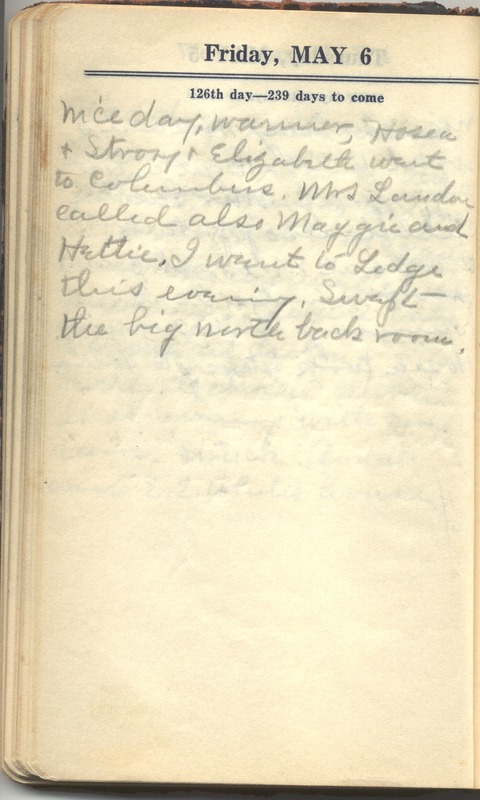 Friday, MAY 6
126th day—239 days to come
Nice day, warmer, Hosea
+ Strong + Elizabeth went
to Columbus. Mrs Landon
called also Maggie and
Hettie. I went to Lodge
this evening. Swept
the big north back room.